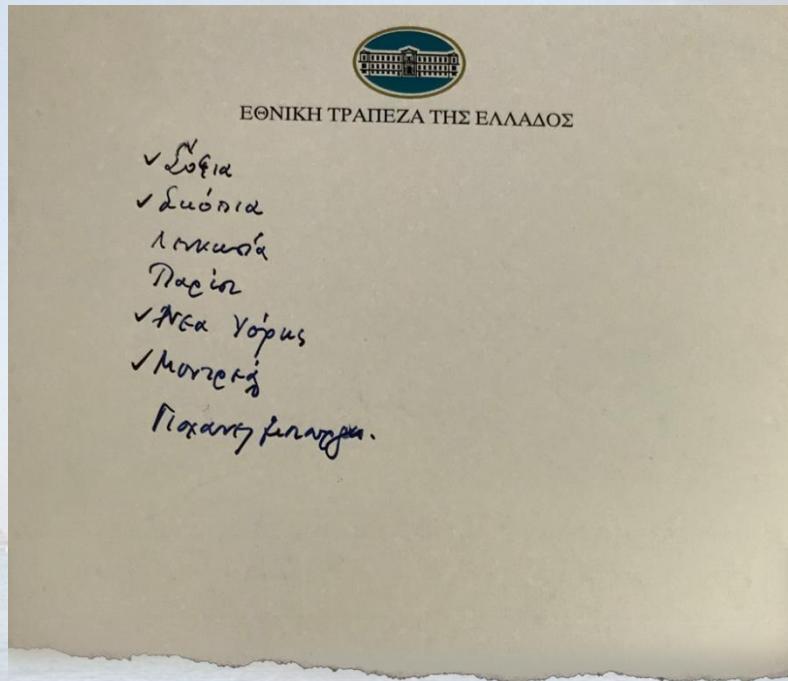 ΕΘΝΙΚΗ ΤΡΑΠΕΖΑ ΤΗΣ ΕΛΛΑΔΟΣ
✓ Σόφια
✓ Σκόπια
Λευκωσία
Παρίσι
✓ Νέα Υόρκη
✓ Μοντρεάλ
Γιοχάνεσμπουργκ.